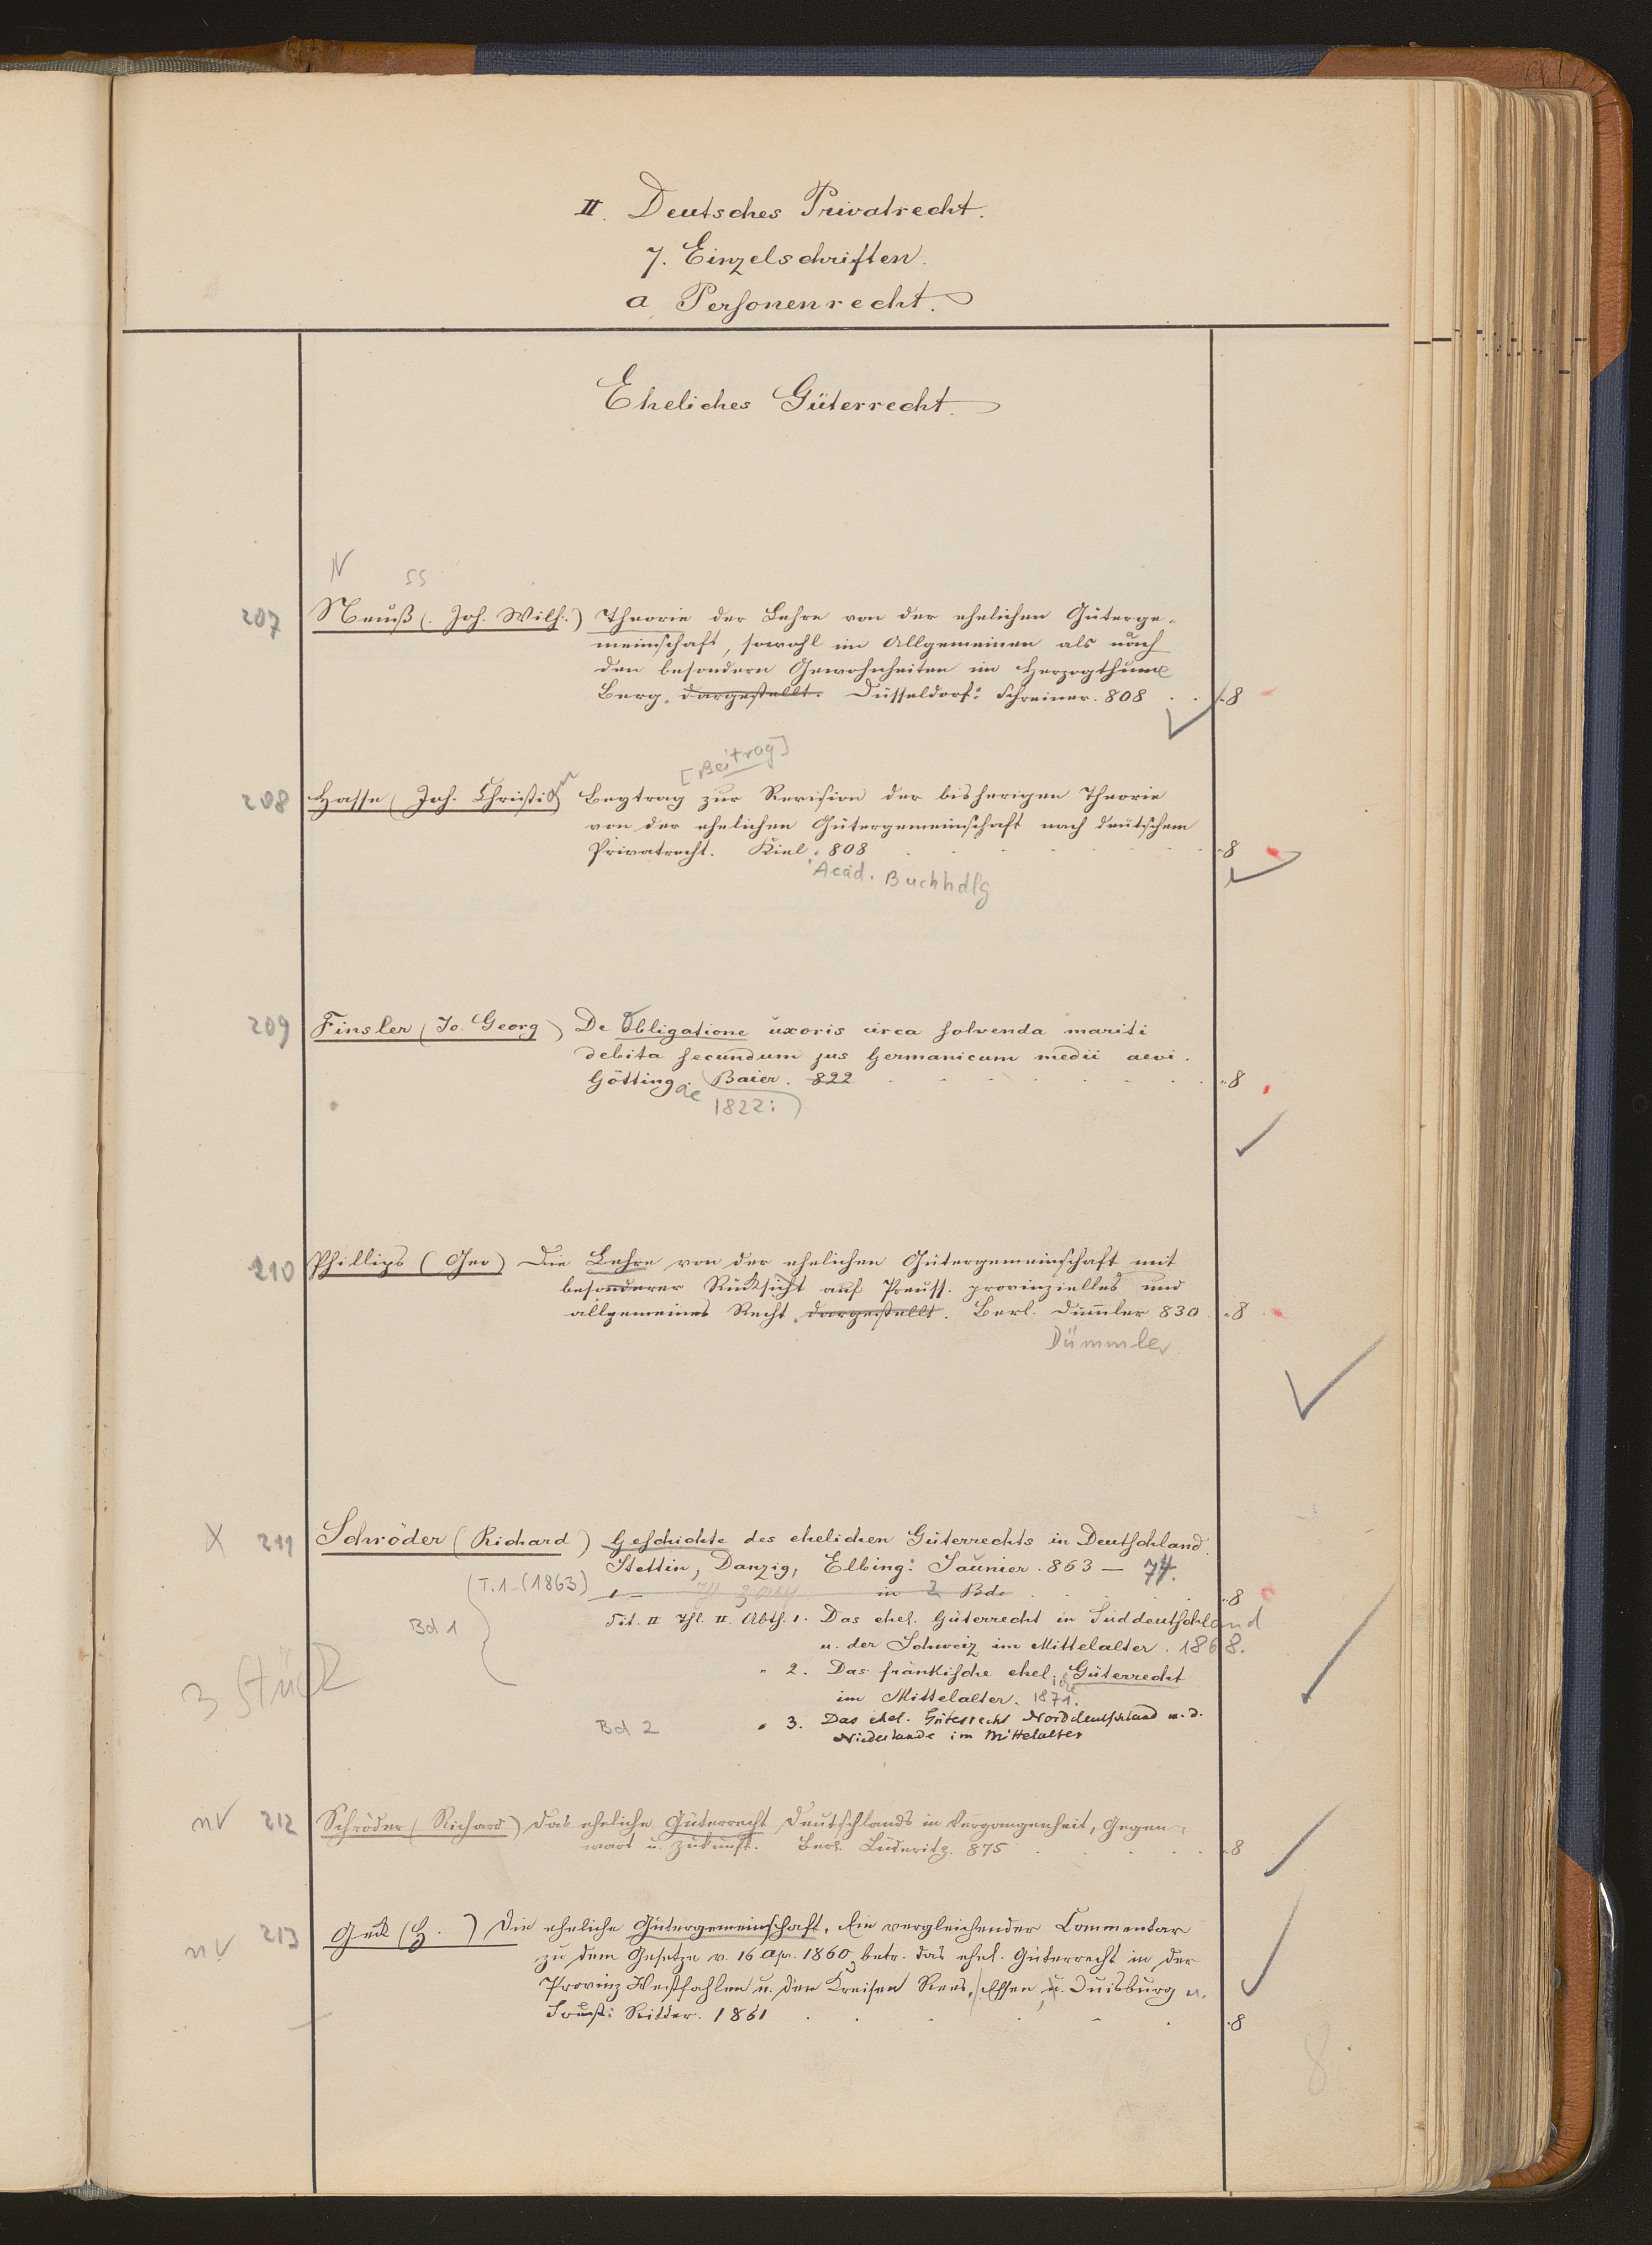 II. Deutsches Privatrecht.
7. Einzelschriften.
a. Personenrecht.
Eheliches Güterrecht.
N ss
207 Neuß (Joh. Wilh.) Theorie der Lehre von der ehelichen Güterge-
meinschaft, sowohl im Allgemeinen als nach
den besondern Gewohnheiten im Herzogthume
Berg, dargestellt. Düsseldorf: Schreiner. 808 . . 8
[Beitrag]
208 Hasse (Joh. Christian Beytrag zur Revision der bisherigen Theorie
von der ehelichen Gütergemeinschaft nach deutschem
Privatrecht. Kiel, 808 8
Acad. Buchhdlg
209 Finsler (Jo. Georg) De Obligatione uxoris circa solvenda mariti
debita secundum jus Germanicum medii aevi.
Göttingae Baier. 822 8
1822:
210 Phillips (Geo) Die Lehre von der ehelichen Gütergemeinschaft mit
besonderer Rücksicht auf Preuss. provinzielles und
allgemeines Recht dargestellt. Berl. Dümler 830. 8
Dümmler
X 211 Schröder (Richard) Geschichte des ehelichen Güterrechts in Deutschland.
Stettin, Danzig, Elbing: Saunier. 863 — 74.
(T. 1 (1863) in 2 Bde 8
Bd 1 Tit. II Thl. II. Abth. 1. Das ehel. Güterrecht in Süddeutschland
u. der Schweiz im Mittelalter. 1868.
3 Stück " 2. Das fränkische ehel. Güterrecht
im Mittelalter. 1871.
Bd 2 " 3. Das ehel. Güterrecht Norddeutschland u. d.
Niederlande im Mittelalter
nV 212 Schröder (Richard) Das eheliche Güterrecht Deutschlands in Vergangenheit, Gegen-
wart u. Zukunft. Berl. Lüderitz. 875 8
nV 213 Geck (H. ) Die eheliche Gütergemeinschaft. Ein vergleichender Commentar
zu dem Gesetze v. 16 Apr. 1860, betr. das ehel. Güterrecht in der
Provinz Westfahlen u. den Kreisen Rees, Essen, u. Duisburg u.
Soest: Ritter. 1861 8
8